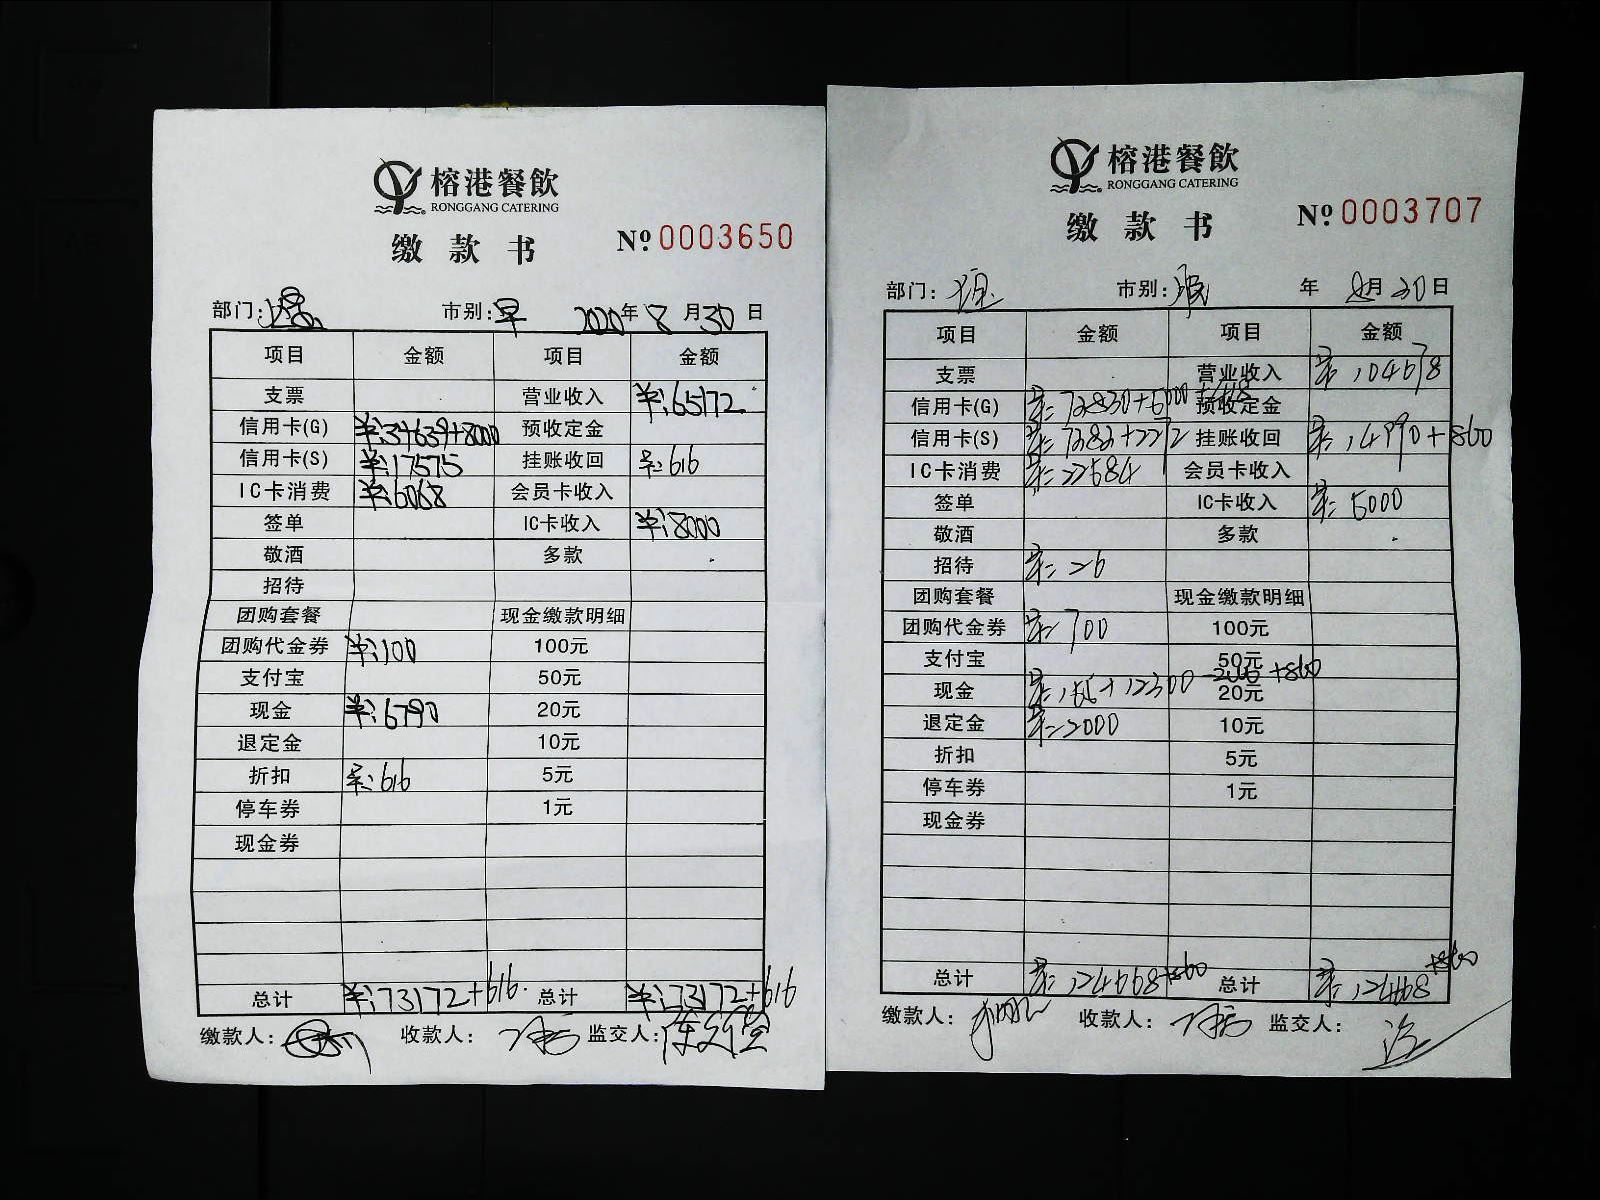 榕港餐飲
RONGGANG CATERING
缴款书
№ 0003650
部门: 市别:早 2020年8月30日
项目 金额 项目 金额
支票 营业收入 ¥:65172
信用卡(G) ¥:34639+8000 预收定金
信用卡(S) ¥:17575 挂账收回 616
IC卡消费 ¥:6068 会员卡收入
签单 IC卡收入 ¥:8000
敬酒 多款
招待
团购套餐 现金缴款明细
团购代金券 ¥:100 100元
支付宝 50元
现金 ¥:6790 20元
退定金 10元
折扣 616 5元
停车券 1元
现金券
总计 ¥:73172+616 总计 ¥:73172+616
缴款人: 收款人: 监交人:
榕港餐飲
RONGGANG CATERING
缴款书
№ 0003707
部门: 市别: 年 8月30日
项目 金额 项目 金额
支票 营业收入
信用卡(G) 预收定金
信用卡(S) 挂账收回
IC卡消费 22584 会员卡收入
签单 IC卡收入 5000
敬酒 多款
招待 26
团购套餐 现金缴款明细
团购代金券 700 100元
支付宝 50元
现金 20元
退定金 2000 10元
折扣 5元
停车券 1元
现金券
总计 124668+860 总计 +860
缴款人: 收款人: 监交人: